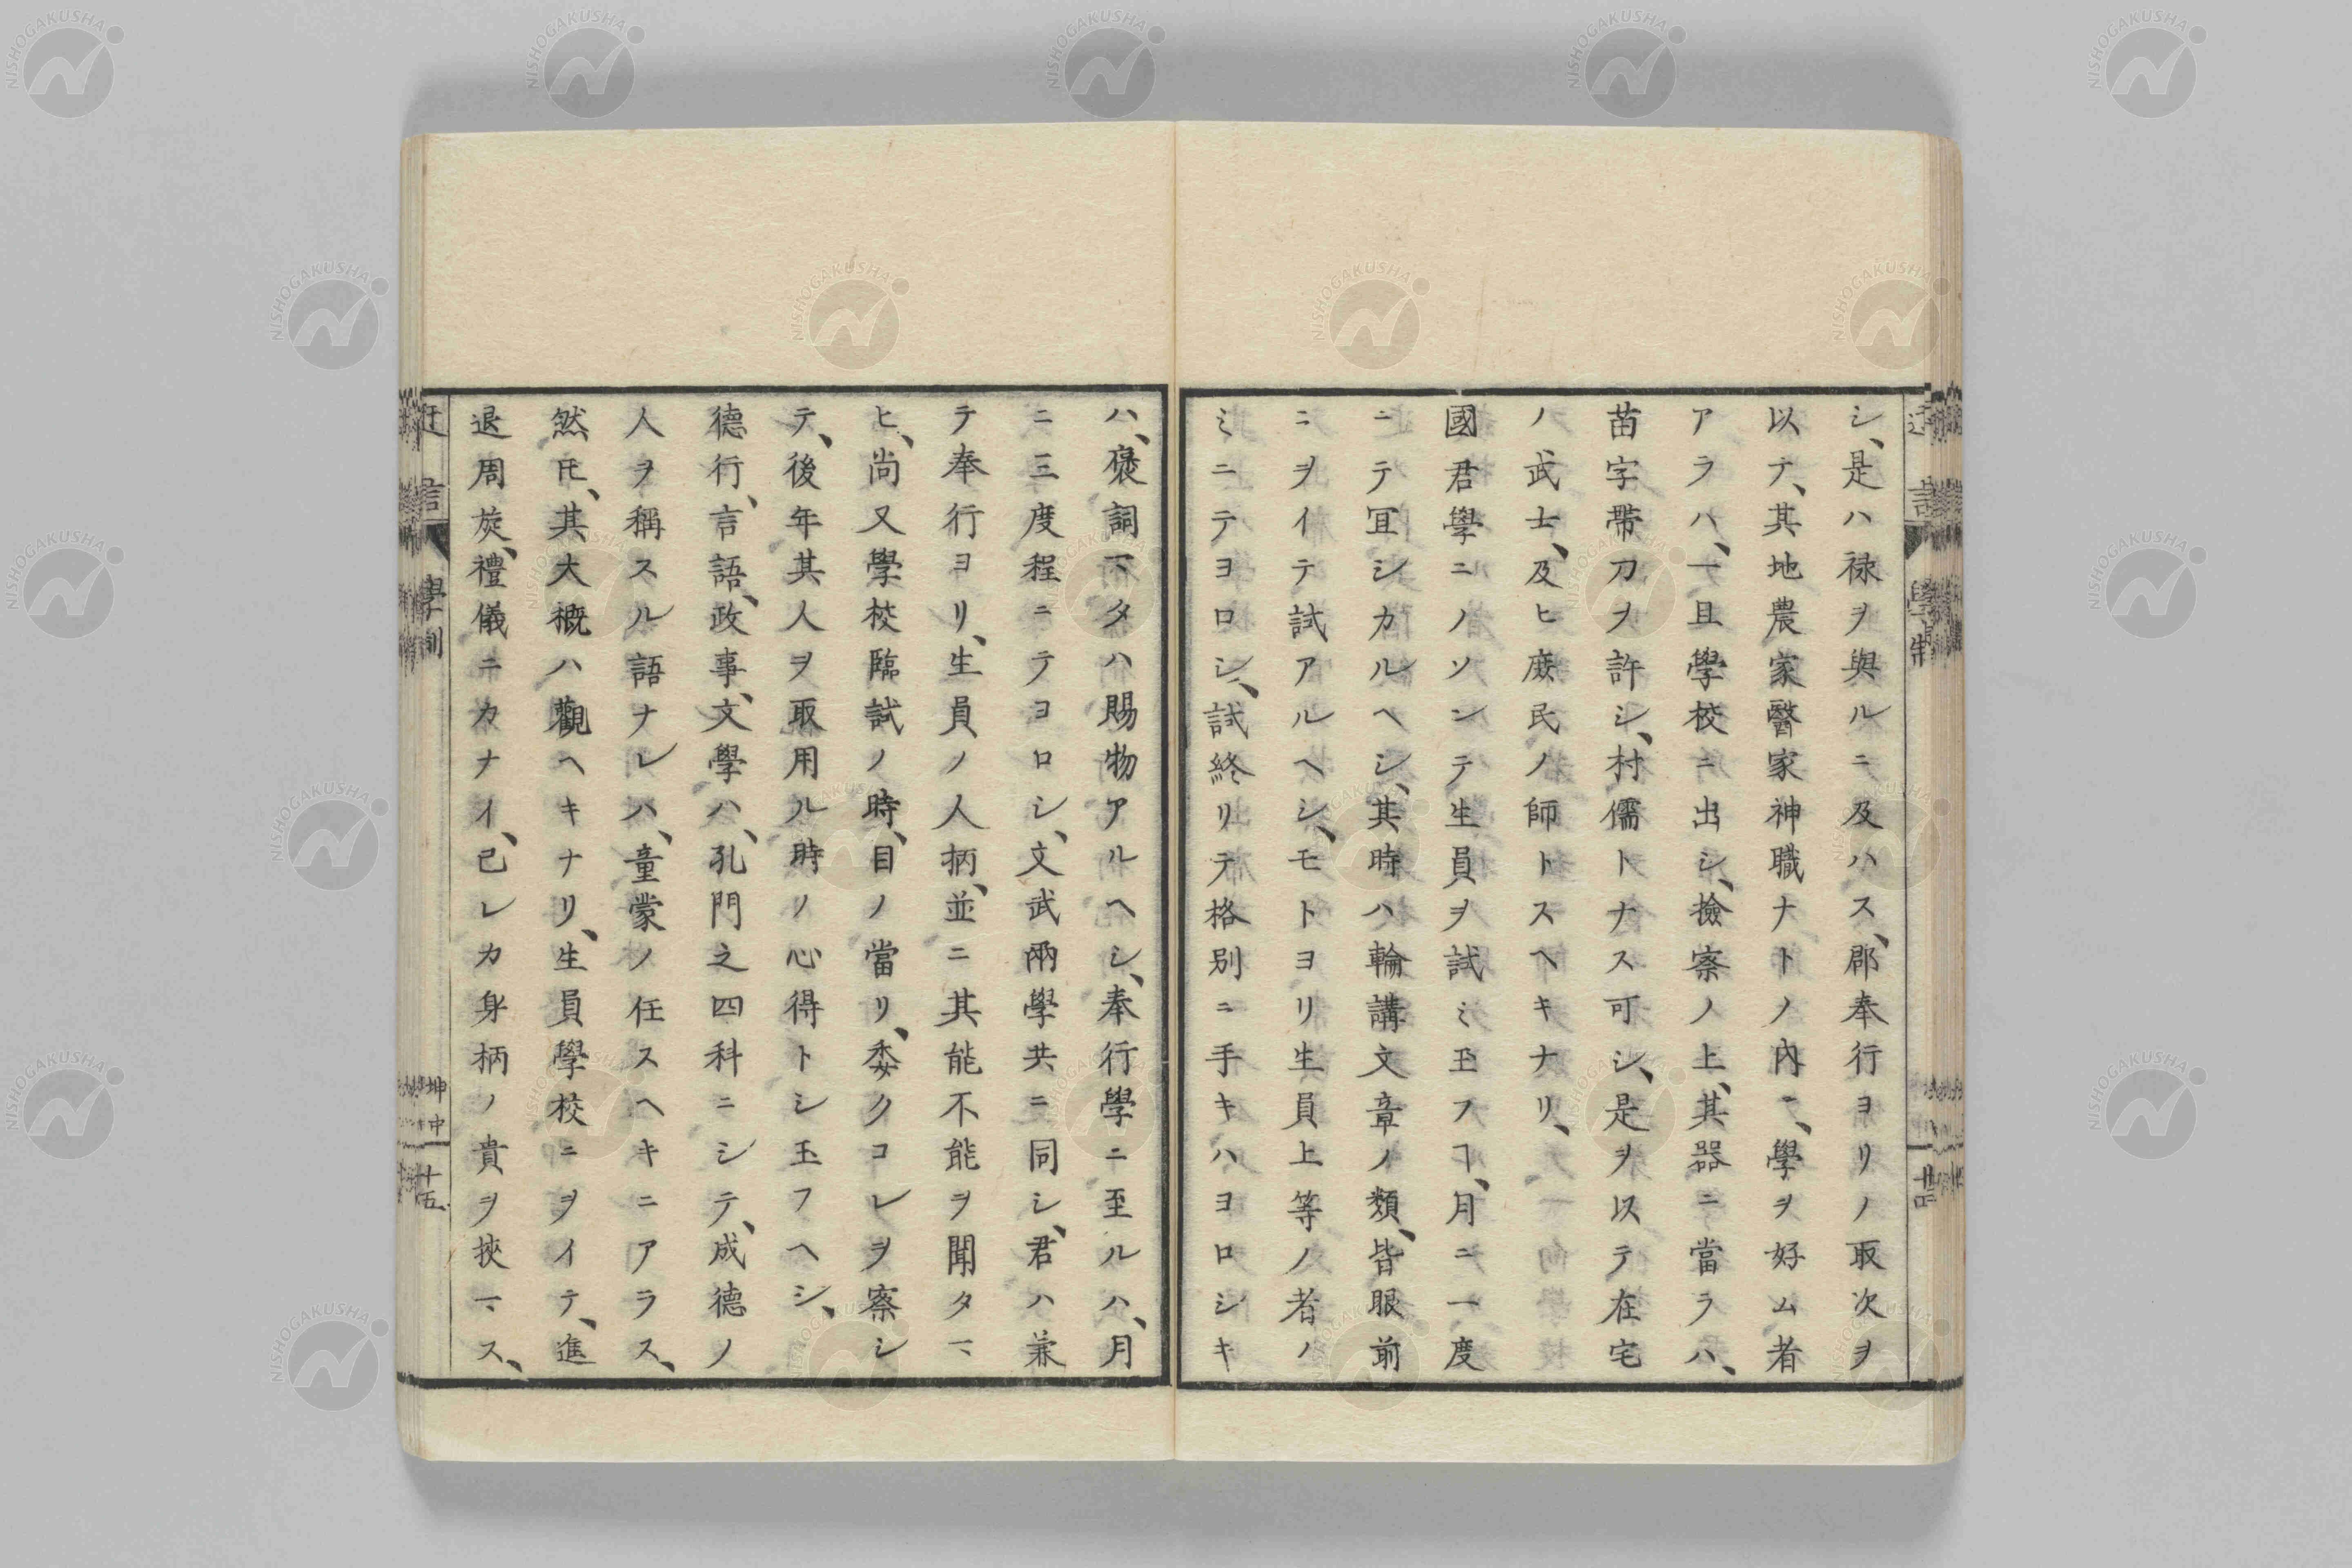 シ、是ハ禄ヲ與ルニ及ハス、郡奉行ヨリノ取次ヲ
以テ、其地農家醫家神職ナトノ內ニ、學ヲ好ム者
アラハ、一且學校ニ出シ、撿察ノ上、其器ニ當ラハ、
苗字帶刀ヲ許シ、村儒トナス可シ、是ヲ以テ在宅
ノ武士、及ヒ庶民ノ師トスヘキナリ、
國君學ニノソンテ生員ヲ試ミ玉フヿ、月ニ一度
ニテ冝シカルヘシ、其時ハ輪講文章ノ類、皆眼前
ニヲイテ試アルヘシ、モトヨリ生員上等ノ者ノ
ミニテヨロシ、試終リテ格別ニ手キハヨロシキ
ハ、褒詞マタハ賜物アルヘシ、奉行學ニ至ルハ、月
ニ三度程ニテヨロシ、文武兩學共ニ同シ、君ハ兼
テ奉行ヨリ、生員ノ人柄、並ニ其能不能ヲ聞タマ
ヒ、尚又學校臨試ノ時、目ノ當リ、委クコレヲ察シ
テ、後年其人ヲ取用ル時ノ心得トシ玉フヘシ、
德行、言語、政事、文學ハ、孔門之四科ニシテ、成德ノ
人ヲ稱スル語ナレハ、童蒙ノ任スヘキニアラス、
然𪜈、其大概ハ觀ヘキナリ、生員學校ニヲイテ、進
退周旋、禮儀ニカナイ、己レカ身柄ノ貴ヲ挾マス、
迂言 學制 十四
迂言 學制 坤中 十五
NISHOGAKUSHA